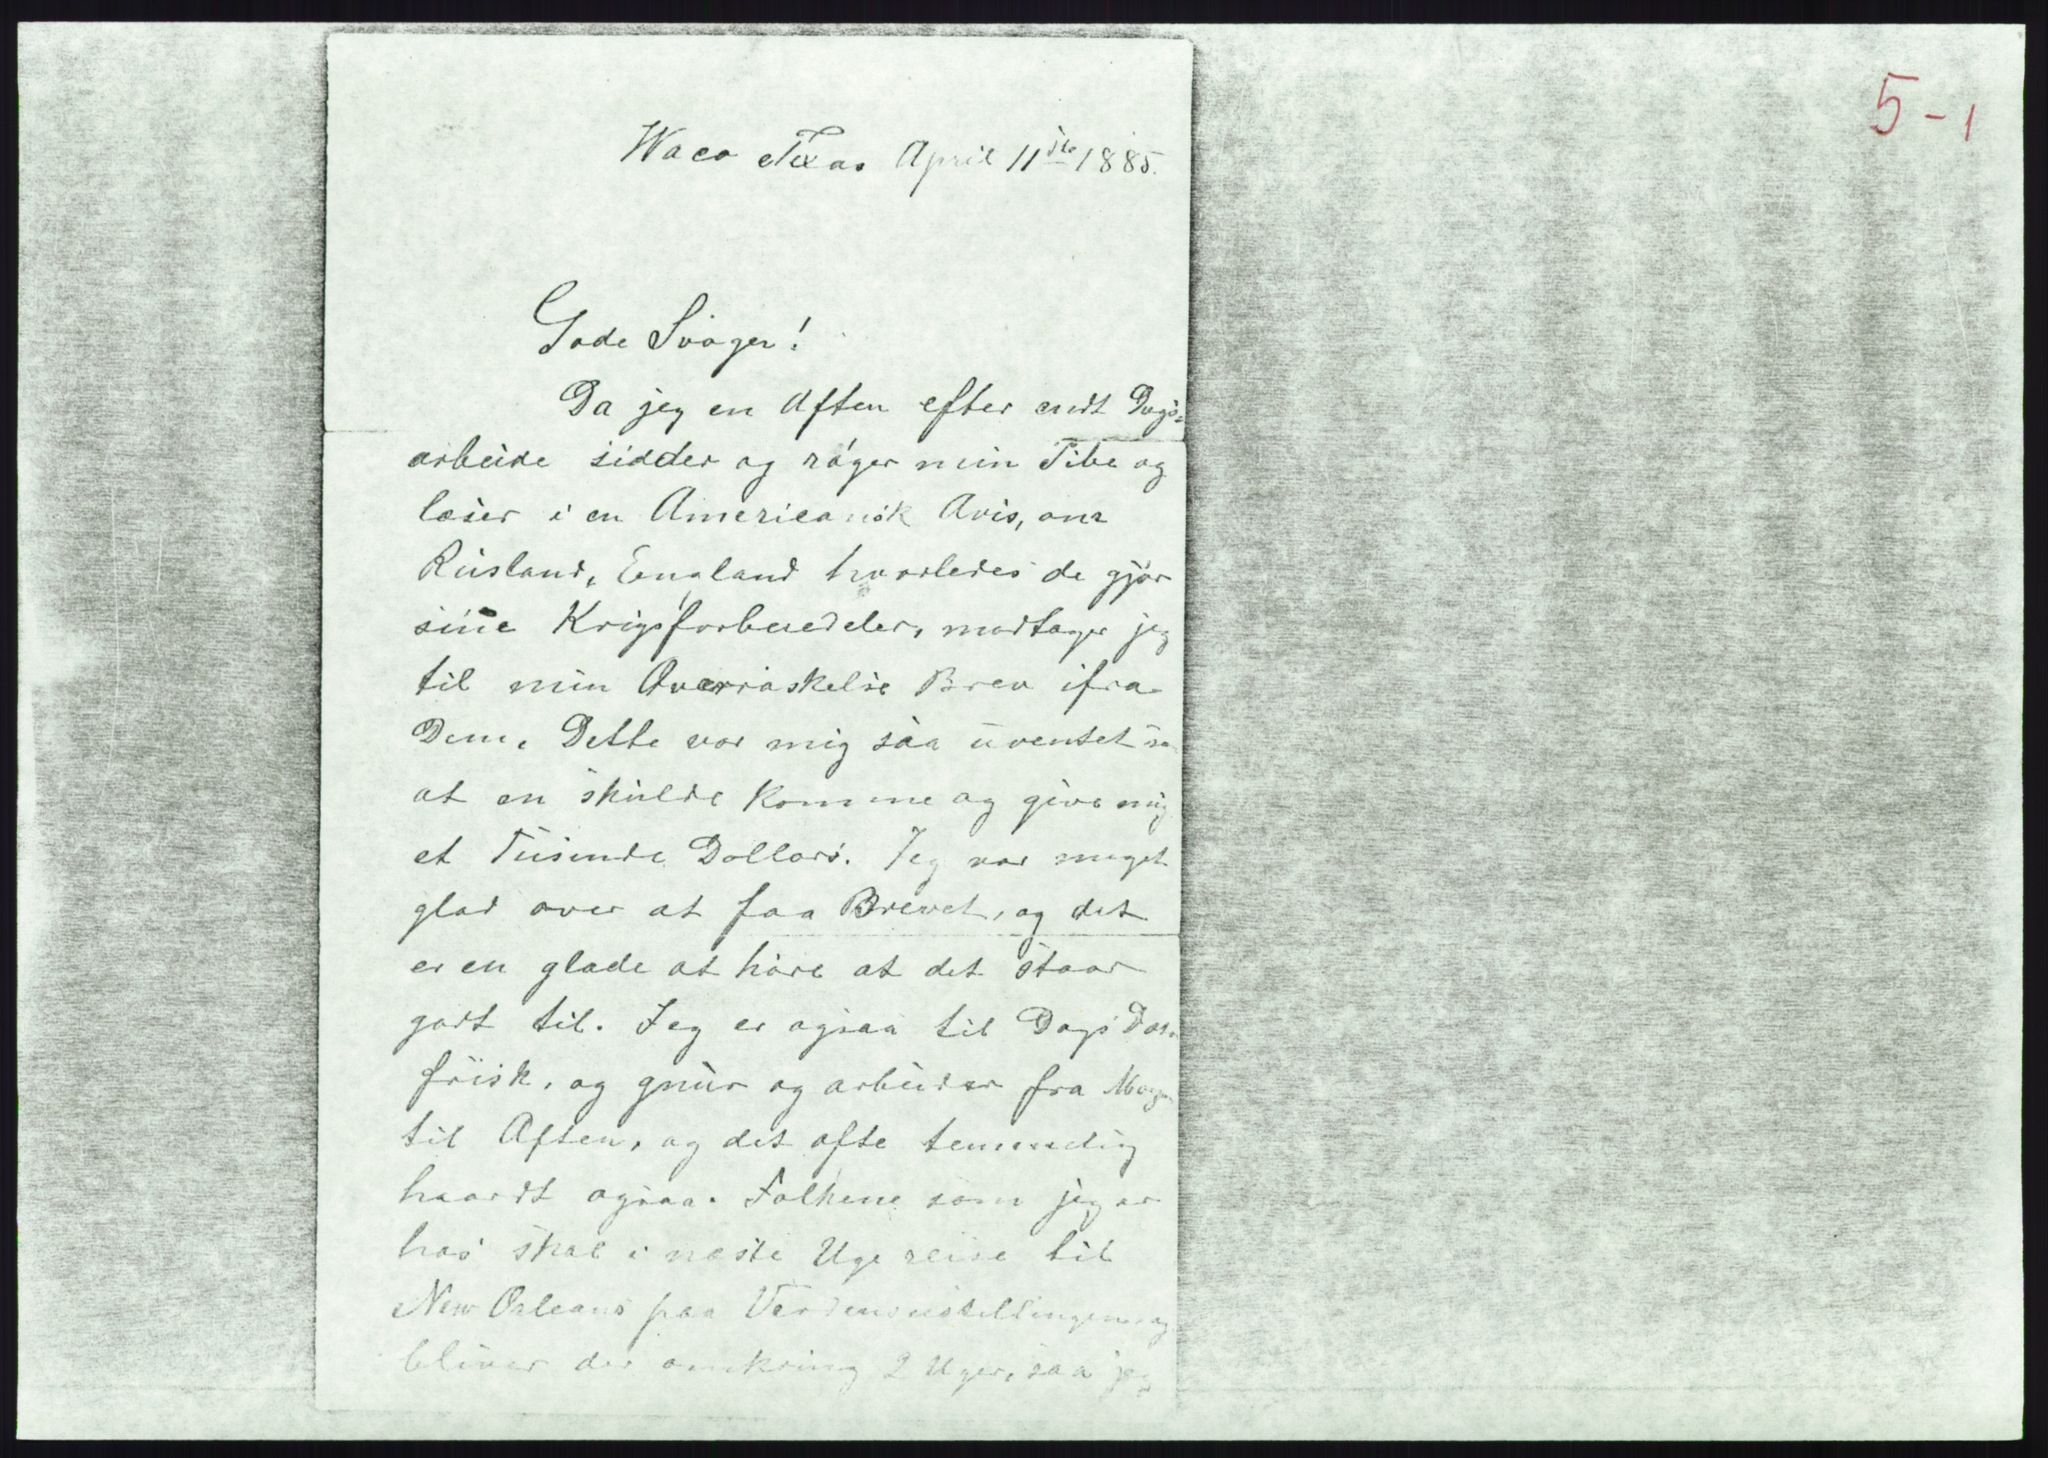 5-1
Waco Texas April 11te 1885.
Gode Svoger!
Da jeg en Aften efter endt Dags-
arbeide sidder og röger min Pibe og
læser i en Americansk Avis, om
Rusland, England hvorledes de gjör
sine Krigsforberedeler, modtager jeg
til min Overraskelse Brev ifra
Dem. Dette var mig saa uventet
at en skulde komme og give mig
et Tusinde Dollars. Jeg var meget
glad over at faa Brevet, og det
er en glæde at höre at det staar
godt til. Jeg er ogsaa til Dags Dato
frisk, og gnur og arbeider fra Morgen
til Aften, og det ofte temmelig
haardt ogsaa. Folkene som jeg er
hos skal i næste Uge reise til
New Orleans paa Verdensustillingen og
bliver der omkring 2 Uger, saa jeg